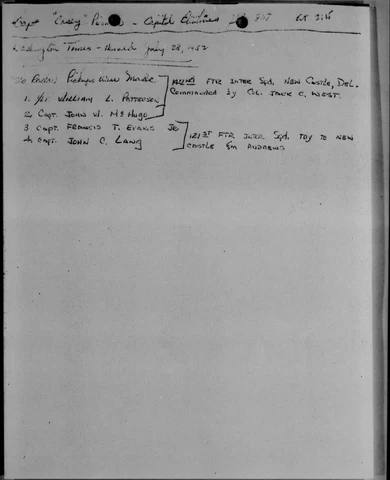 Capt "Casey" - Capitol 507 Ext 215
Washington Times - Herald July 28, 1952
No Radar Pickups Were Made
1. 1st William L. Patterson
2. Capt. John W. McHugo
142nd FTR INTER Sqd, New Castle, Del.
Commanded by Col. Jack C. West.
3 Capt. Francis T. Evans Jr
4. Capt. John C. Lang
121st FTR INTER Sqd. TDY to New
Castle fm Andrews